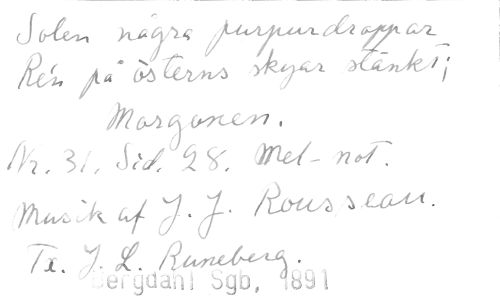 Solen några purpurdroppar
Re'n på österns skyar stänkt;
Morgonen.
Nr. 31. Sid. 28. Mel-not.
Musik af J. J. Rousseau.
Tx. J. L. Runeberg.
Bergdahl Sgb, 1891